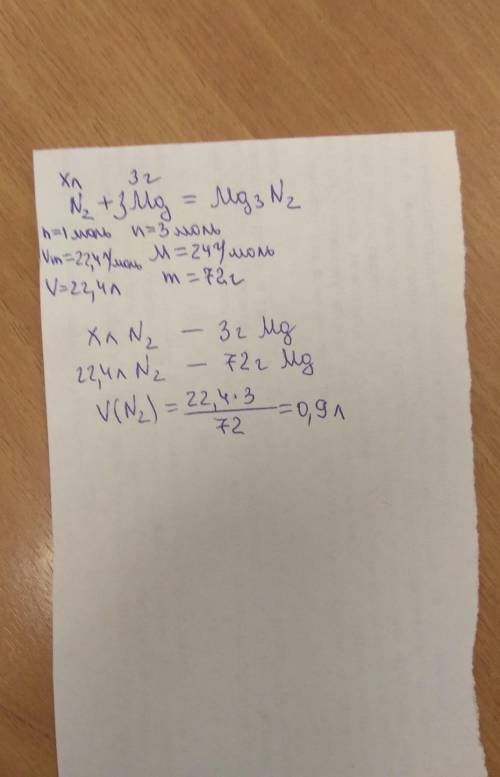 xл 3г
N₂ + 3Mg = Mg₃N₂
n=1моль n=3моль
Vm=22,4л/моль M=24г/моль
V=22,4л m=72г
xл N₂ — 3г Mg
22,4л N₂ — 72г Mg
V(N₂) = 22,4·3 / 72 = 0,9л